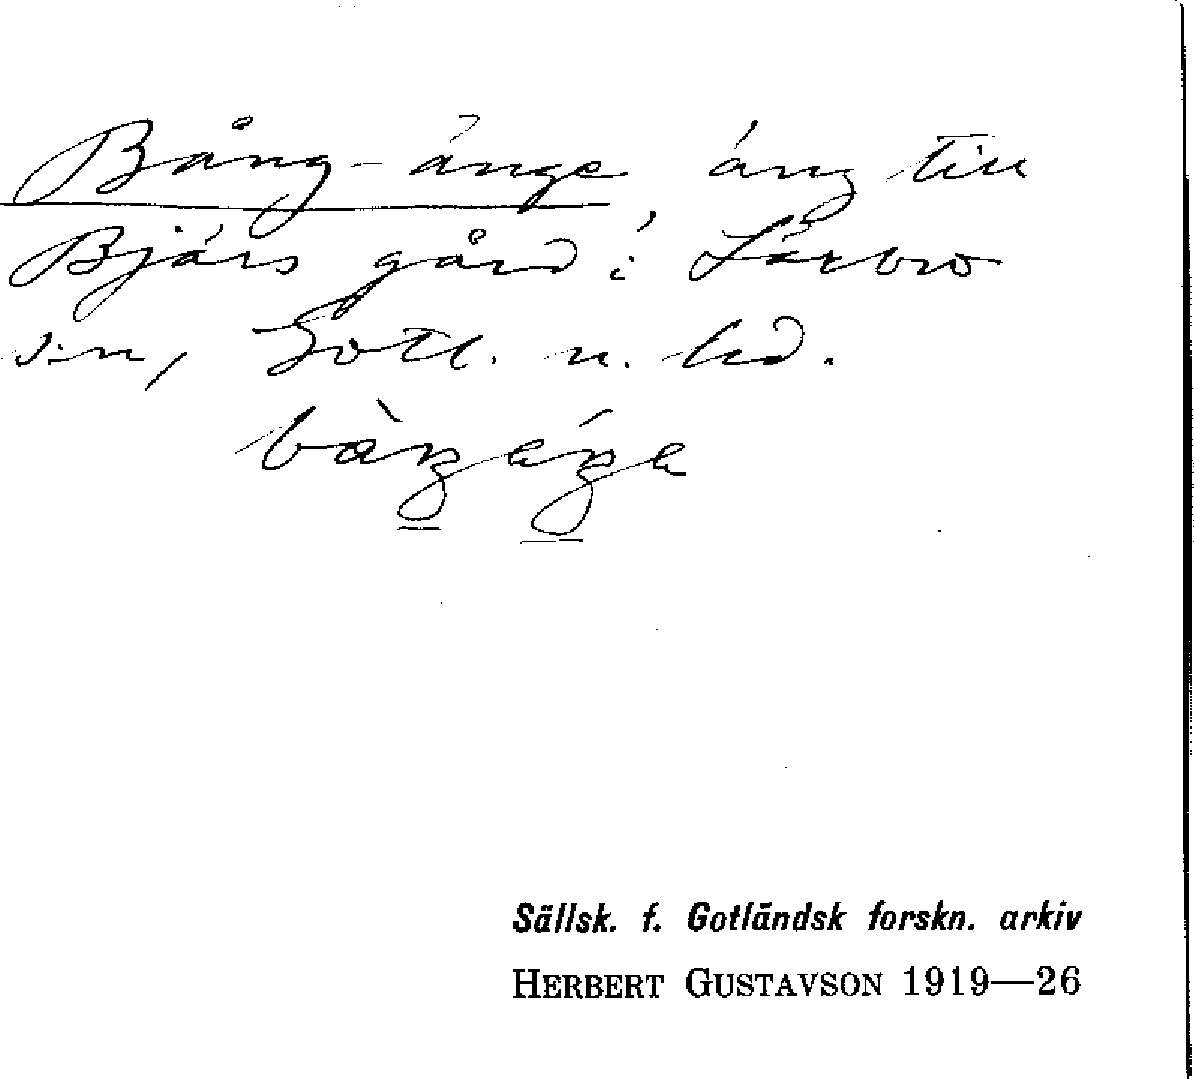 Bång-änge äng till
Bjärs gård i Lärbro
s:n, Gotl. n. hd.
Sällsk. f. Gotländsk forskn. arkiv
HERBERT GUSTAVSON 1919—26